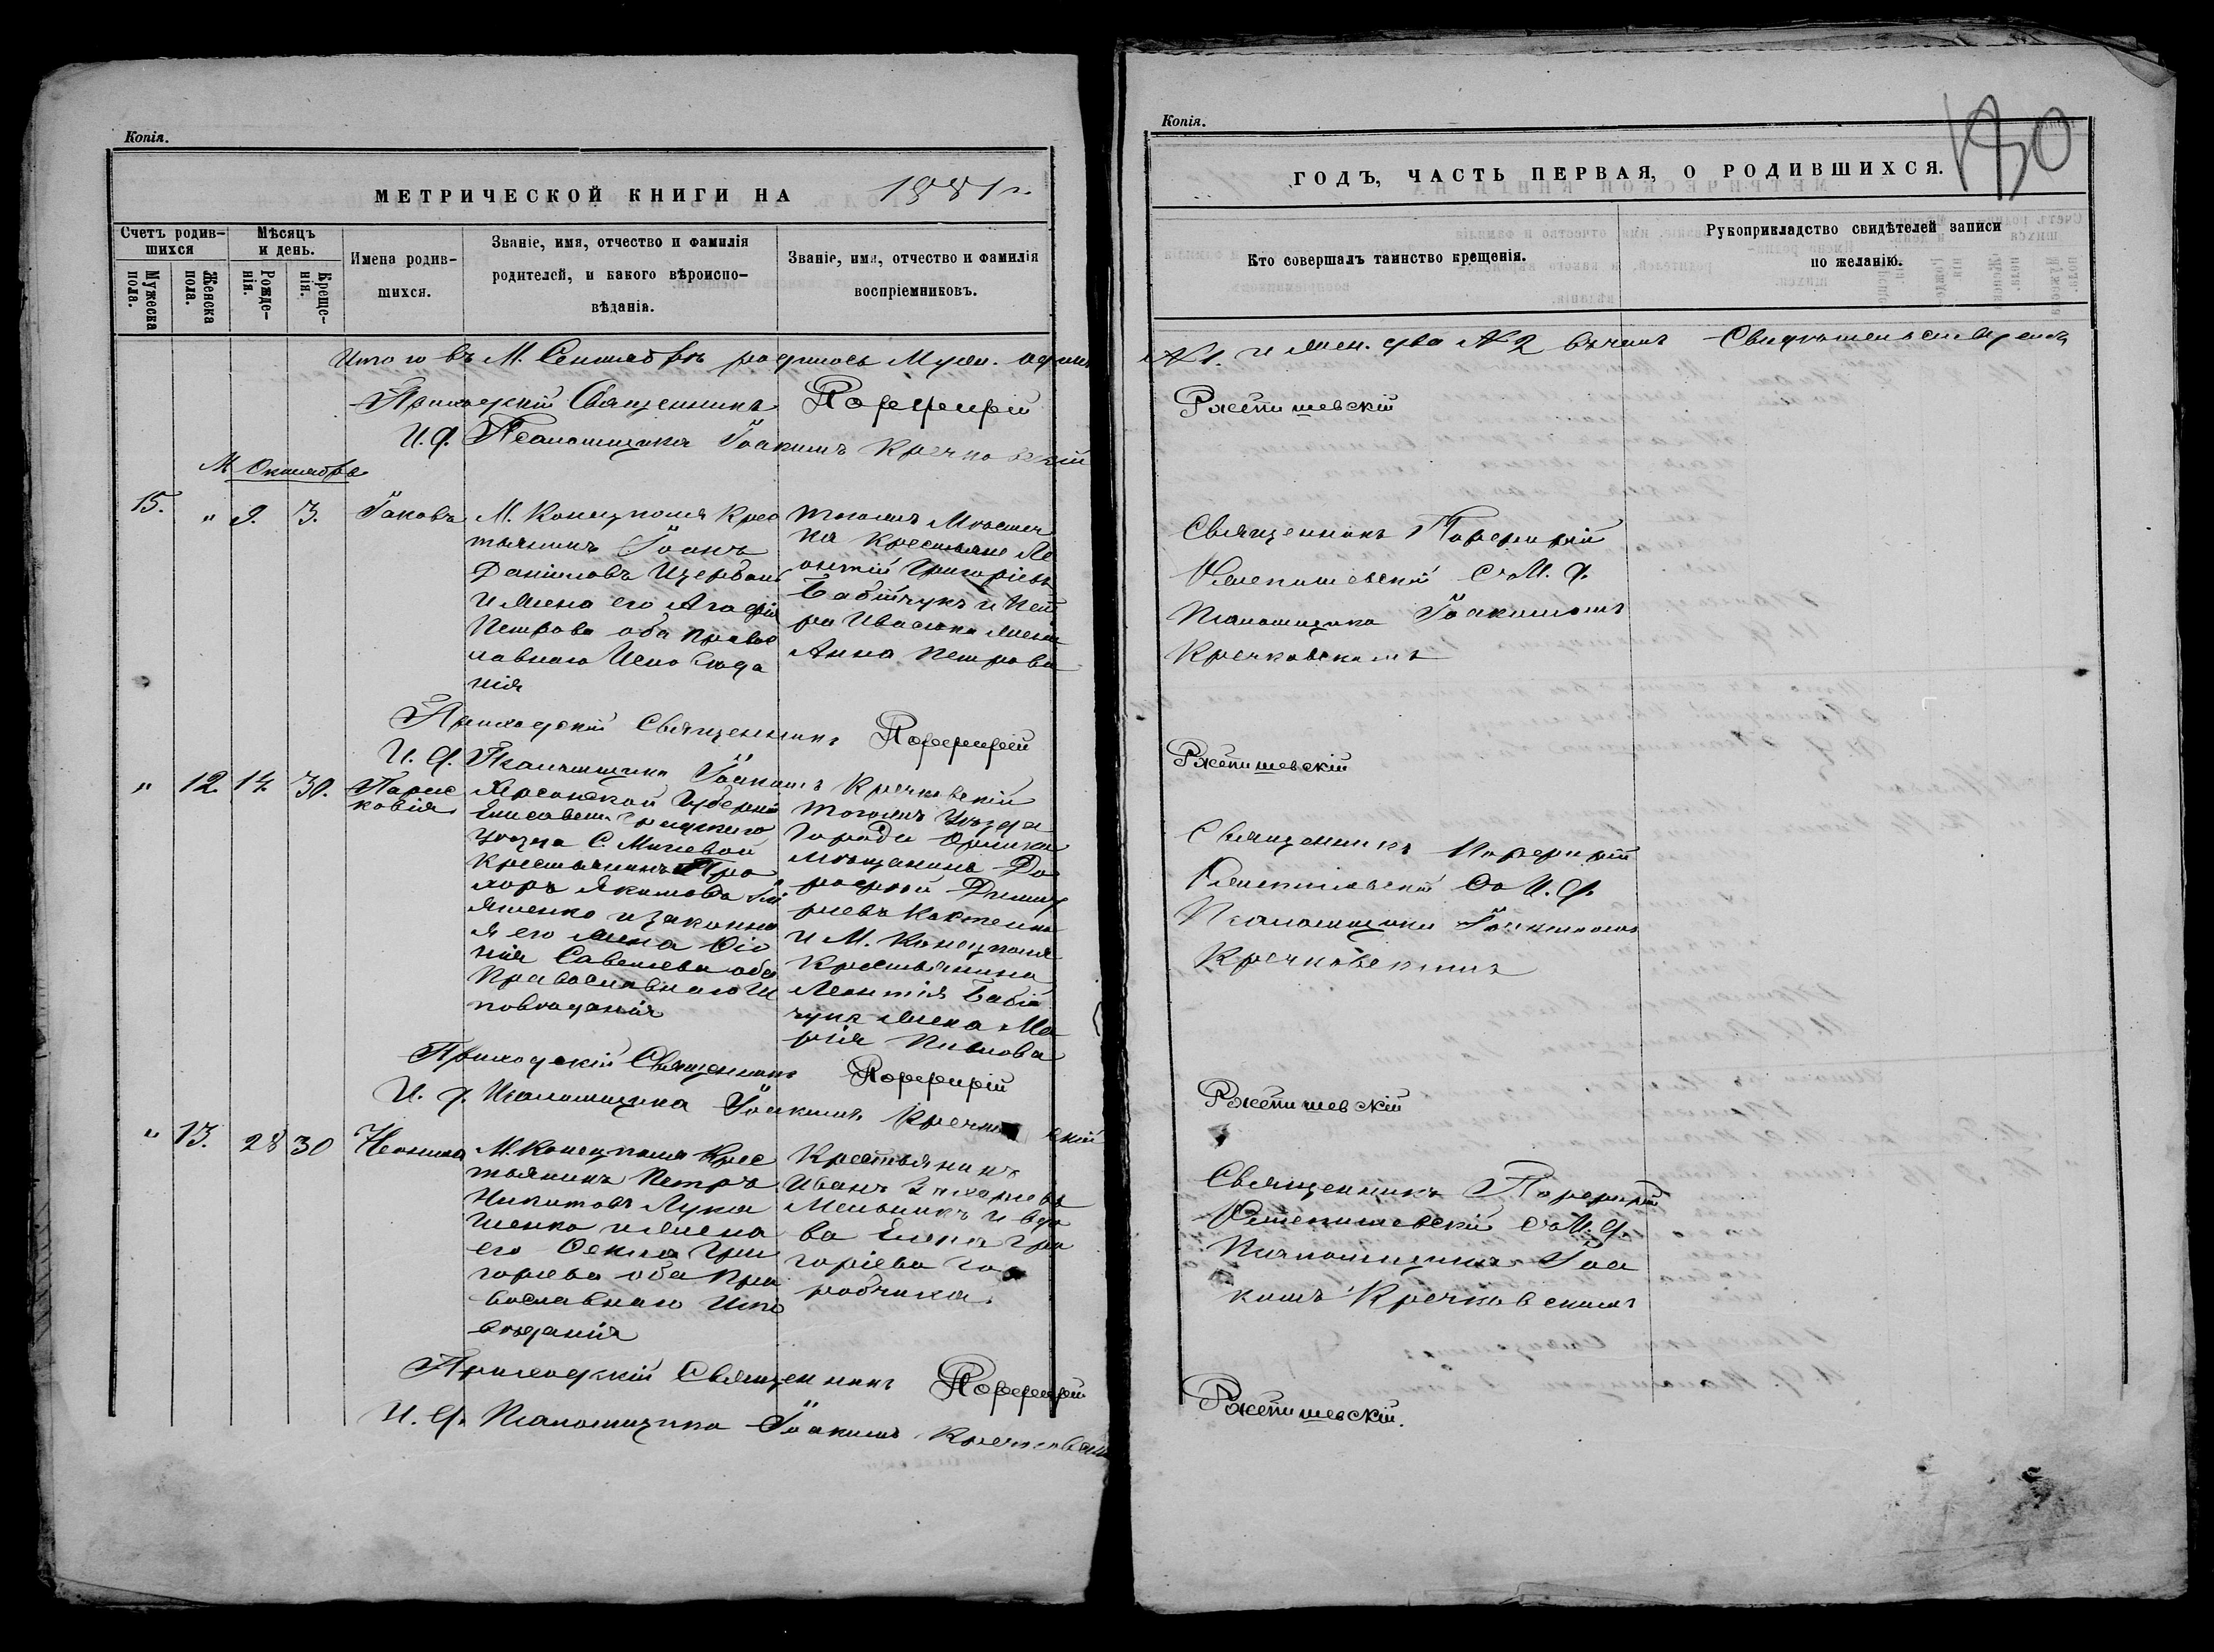 Копія.
МЕТРИЧЕСКОЙ КНИГИ НА 1881 г.
Счетъ родив-
шихся
Мужеска
пола.
Женска
пола.
Мѣсяцъ
и день.
Рожде-
нія.
Креще-
нія.
Имена родив-
шихся.
Званіе, имя, отчество и фамилія
родителей, и какого вѣроиспо-
вѣданія.
Званіе, имя, отчество и фамилія
воспріемниковъ.
Итого въ М. Сентябрѣ родилось Муж. одинъ
Приходскій Священникъ Порфирій
И. д. Псаломщика Іоакимъ Кречковскій
М Октябрь
15. " 9. 3.
Іаковъ
М. Конецполя Крес
тьянинъ Іоанъ
Даніиловъ Щербань
и жена его Агафія
Петрова оба право
славнаго Исповѣда
нія
тогожъ Мѣстеч
ка крестьяне Ле
онтій Григоріевъ
Бабійчукъ и Пет
ра Ивасюка жена
Анна Петрова
Приходскій Священникъ Порфирій
И. д. Псаломщика Іоакимъ Кречковскій
" 12. 14. 30.
Парас
ковія
Херсонской Губерніи
Елисаветградскаго
уѣзда С.
Крестьянинъ Про
хоръ Якимовъ
и законна
я его жена
нія Савельева оба
Православнаго Ис
повѣданія
тогожъ Уѣзда
города
мѣщанинъ До
рофей Димит
ріевъ
и М. Конецполя
Крестьянина
Леонтія Бабій
чука жена Ма
рія
Приходскій Священникъ Порфирій
И. д. Псаломщика Іоакимъ Кречковскій
" 13. 28 30
Неонила
М. Конецполя Крес
тьянинъ Петръ
Никитовъ Лука
шенко и жена
его Гри
горьева оба Пра
вославнаго Испо
вѣданія
Крестьянинъ
Иванъ Захарьевъ
Мельникъ и вдо
ва Елена Гри
горіева Го
робчика.
Приходскій Священникъ Порфирій
И. д. Псаломщика Іоакимъ Кречковскій
Копія.
180
ГОДЪ, ЧАСТЬ ПЕРВАЯ, О РОДИВШИХСЯ.
Кто совершалъ таинство крещенія.
Рукоприкладство свидѣтелей записи
по желанію.
№ 1. и жен. два № 2 въ чемъ Свидѣтельствуемъ
Ржепишевскій
Священникъ Порфирій
Ржепишевскій съ И. д.
Псаломщика Іоакимомъ
Кречковскимъ
Ржепишевскій
Священникъ Порфирій
Ржепишевскій со И. д.
Псаломщика Іоакимомъ
Кречковскимъ
Ржепишевскій
Священникъ Порфирій
Ржепишевскій съ И. д.
Псаломщика Іоа
кимъ Кречковскимъ
Ржепишевскій.